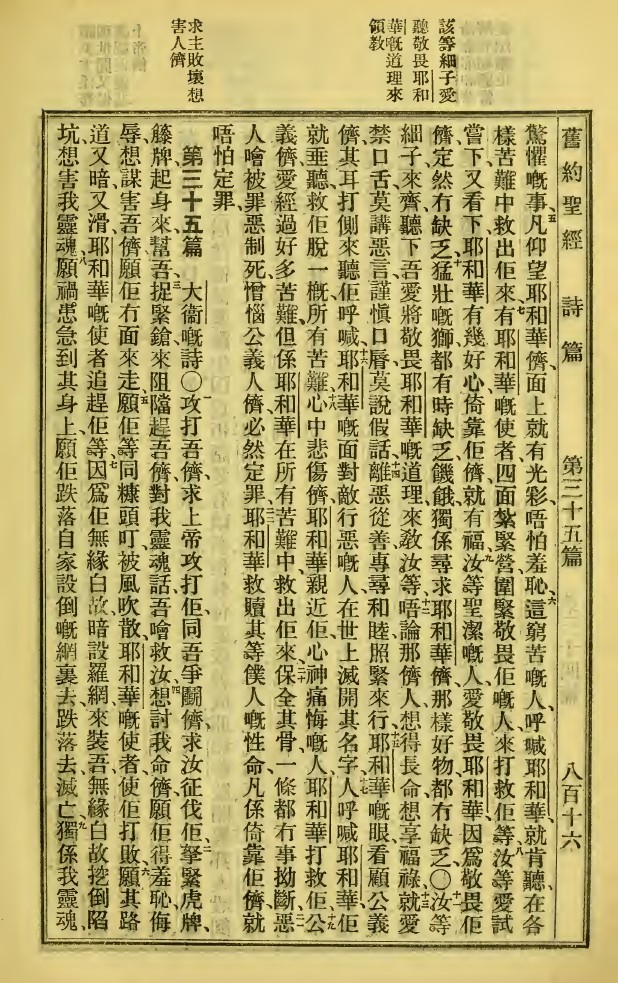 舊約聖經　詩篇　第三十五篇　八百十六
該等細子愛
聽敬畏耶和
華嘅道理來
領教
求主敗壞想
害人儕
驚懼嘅事、五凡仰望耶和華儕、面上就有光彩、唔怕羞恥、六這窮苦嘅人呼喊耶和華、就肯聽、在各
樣苦難中救出佢來、七有耶和華嘅使者、四面紮緊營圍緊敬畏佢嘅人、來打救佢等、八汝等愛試
嘗下、又看下、耶和華有幾好心、倚靠佢儕、就有福、九汝等聖潔嘅人、愛敬畏耶和華、因爲敬畏佢
儕、定然冇缺乏、十猛壯嘅獅、都有時缺乏飢餓、獨係尋求耶和華儕、那樣好物都冇缺乏、〇十一汝等
細子來齊聽下、吾愛將敬畏耶和華嘅道理、來教汝等、十二唔論那儕人、想得長命、想享福祿、十三就愛
禁口舌莫講惡言、謹愼口唇莫說假話、十四離惡從善、專尋和睦、照緊來行、十五耶和華嘅眼、看顧公義
儕、其耳打側來聽佢呼喊、十六耶和華嘅面、對敵行惡嘅人、在世上滅開其名字、十七人呼喊耶和華、佢
就垂聽、救佢脫一槪所有苦難、十八心中悲傷儕、耶和華親近佢、心神痛悔嘅人、耶和華打救佢、十九公
義儕愛經過好多苦難、但係耶和華在所有苦難中救出佢來、二十保全其骨、一條都冇事拗斷、二一惡
人噲被罪惡制死、憎惱公義人儕、必然定罪、二二耶和華救贖其等僕人嘅性命、凡係倚靠佢儕、就
唔怕定罪、
第三十五篇　大衞嘅詩〇一攻打吾儕、求上帝攻打佢、同吾爭鬭儕、求汝征伐佢、二拏緊虎牌、
籐牌、起身來幫吾、三捉緊鎗來阻擋趕吾儕、對我靈魂話、吾噲救汝、四想討我命儕、願佢得羞恥侮
辱、想謀害吾儕、願佢冇面來走、五願佢等同糠頭叮、被風吹散、耶和華嘅使者、使佢打敗、六願其路
道又暗又滑、耶和華嘅使者追趕佢等、七因爲佢無緣白故、暗設羅網來裝吾、無緣白故、挖倒陷
坑、想害我靈魂、八願禍患急到其身上、願佢跌落自家設倒嘅網裏去、跌落去滅亡、九獨係我靈魂、